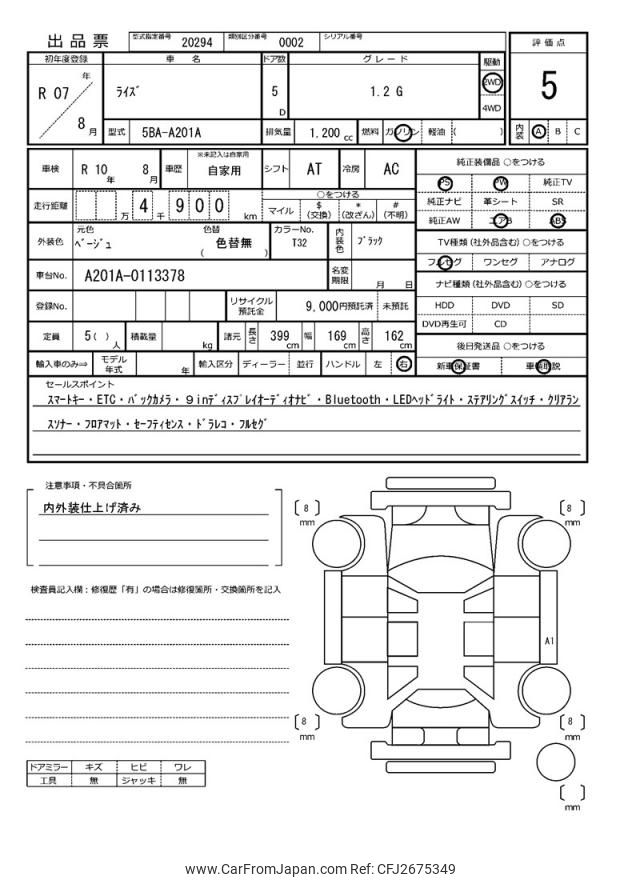 出品票 型式指定番号 20294 類別区分番号 0002 シリアル番号
評価点
5
内装 A B C
初年度登録 車名 ドア数 グレード 駆動
R 07 年 8 月 ﾗｲｽﾞ 5 D 1.2 G 2WD 4WD
型式 5BA-A201A 排気量 1.200 cc 燃料 ガソリン 軽油 ( )
※未記入は自家用
車検 R 10 年 8 月 車歴 自家用 シフト AT 冷房 AC
走行距離 万 4 千 9 0 0 km
○をつける
マイル $(交換) *(改ざん) #(不明)
外装色 元色 ﾍﾞｰｼﾞｭ 色替 ( 色替無 ) カラーNo. T32 内装色 ﾌﾞﾗｯｸ
車台No. A201A-0113378 名変期限 月 日
登録No. リサイクル預託金 9,000円預託済 未預託
定員 5( ) 人 積載量 kg 諸元 長さ 399 cm 幅 169 cm 高さ 162 cm
輸入車のみ⇒ モデル年式 年 輸入区分 ディーラー 並行 ハンドル 左 右
純正装備品 ○をつける
PS PW 純正TV
純正ナビ 革シート SR
純正AW エアB ABS
TV種類 (社外品含む) ○をつける
フルセグ ワンセグ アナログ
ナビ種類 (社外品含む) ○をつける
HDD DVD SD
DVD再生可 CD
後日発送品 ○をつける
新車保証書 車輌取説
セールスポイント
ｽﾏｰﾄｷｰ・ETC・ﾊﾞｯｸｶﾒﾗ・９inﾃﾞｨｽﾌﾟﾚｲｵｰﾃﾞｨｵﾅﾋﾞ・Bluetooth・LEDﾍｯﾄﾞﾗｲﾄ・ｽﾃｱﾘﾝｸﾞｽｲｯﾁ・ｸﾘｱﾗﾝ
ｽｿﾅｰ・ﾌﾛｱﾏｯﾄ・ｾｰﾌﾃｨｾﾝｽ・ﾄﾞﾗﾚｺ・ﾌﾙｾｸﾞ
注意事項・不具合箇所
内外装仕上げ済み
検査員記入欄：修復歴「有」の場合は修復箇所・交換箇所を記入
[ 8 ] mm
[ 8 ] mm
A1
[ 8 ] mm
[ 8 ] mm
[ ] mm
ドアミラー キズ ヒビ ワレ
工具 無 ジャッキ 無
www.CarFromJapan.com Ref: CFJ2675349